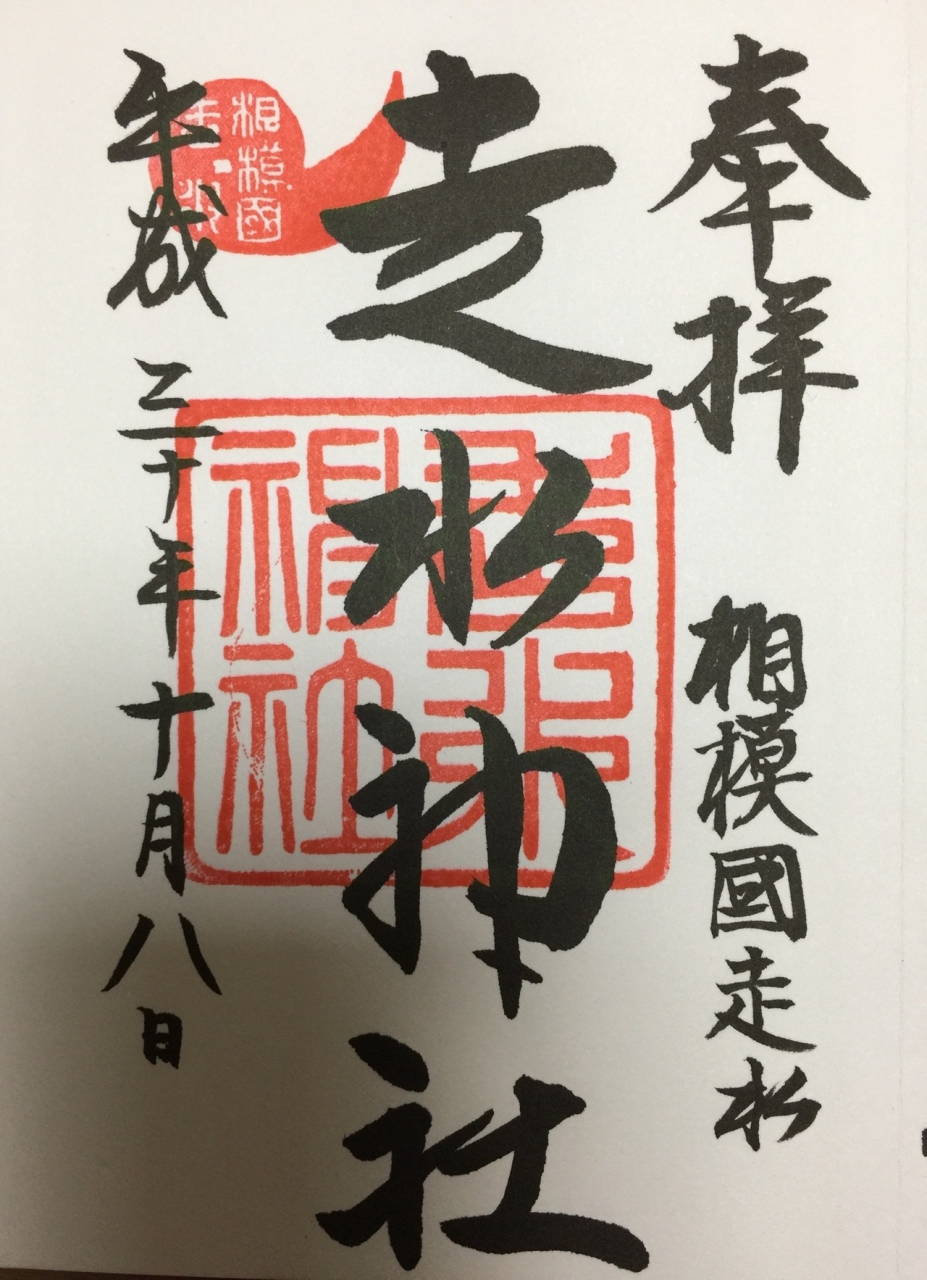 奉拝
相模國走水
走水神社
平成三十年十月八日
相模國
走水
走水
神社